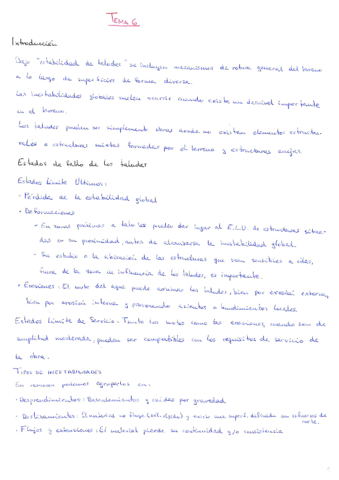 TEMA 6
Introducción
Bajo "estabilidad de taludes" se incluyen mecanismos de rotura general del terreno
a lo largo de superficies de forma diversa.
Las inestabilidades globales suelen ocurrir cuando existe un desnivel importante
en el terreno.
Los taludes pueden ser simplemente obras donde no existen elementos estructu-
rales o estructuras mixtas formadas por el terreno y estructuras anejas.
Estados de fallo de los taludes
Estados Límite Últimos:
- Pérdida de la estabilidad global
- Deformaciones
En zonas próximas a taludes puede dar lugar al E.L.U. de estructuras situa-
das en su proximidad, antes de alcanzarse la inestabilidad global.
la ubicación de las estructuras que sean sensibles a ellas,
fuera de la zona de influencia de los taludes, es importante.
- Erosiones: El mov. del agua puede erosionar los taludes, bien por erosión externa,
bien por erosión interna y provocando asientos o hundimientos locales
Estados Límite de Servicio: Tanto los movs como las erosiones, cuando son de
amplitud moderada, pueden ser compatibles con los requisitos de servicio de
la obra.
TIPOS DE INESTABILIDADES
En resumen podemos agruparlos en:
- Desprendimientos: Basculamientos y caídas por gravedad
- Deslizamientos: El material no fluye y existe una superf. definida con esfuerzos de
corte.
- Flujos y extensiones: El material pierde su continuidad y/o consistencia